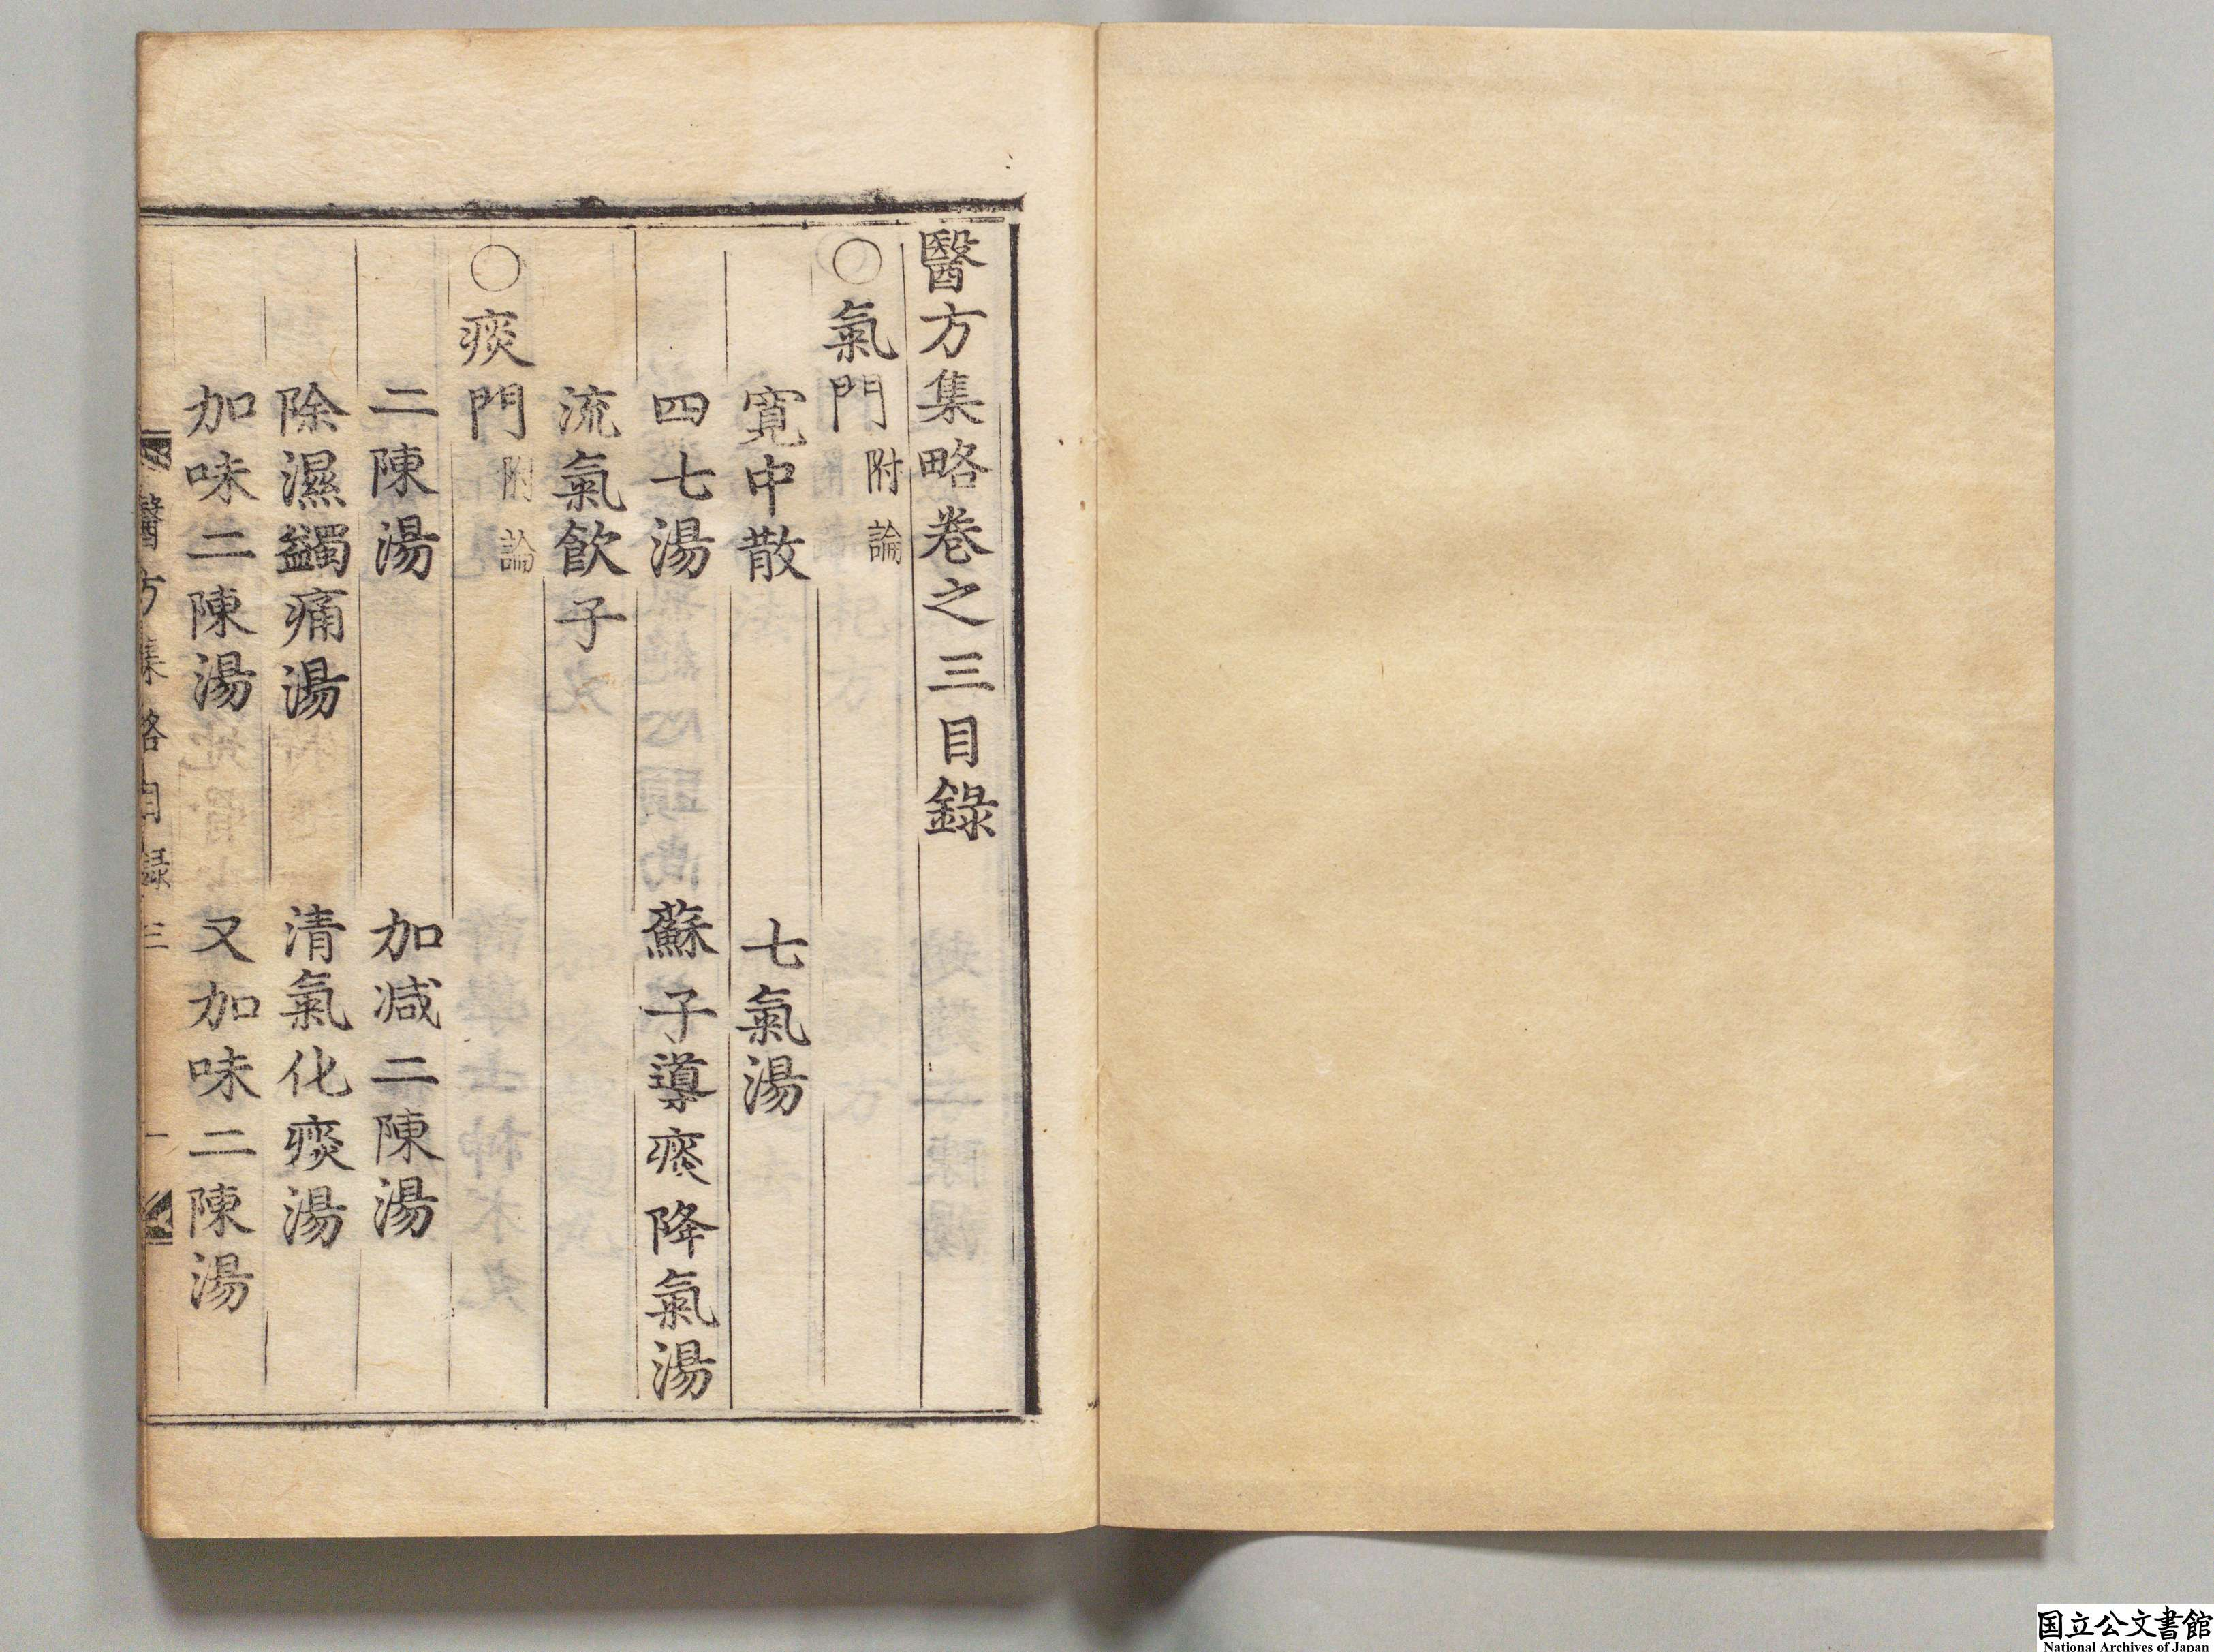 醫方集略卷之三目錄
○氣門 附論
寬中散 七氣湯
四七湯 蘇子導痰降氣湯
流氣飲子
○痰門 附論
二陳湯 加減二陳湯
除濕蠲痛湯 清氣化痰湯
加味二陳湯 又加味二陳湯
醫方集略目錄 三 一
国立公文書館
National Archives of Japan